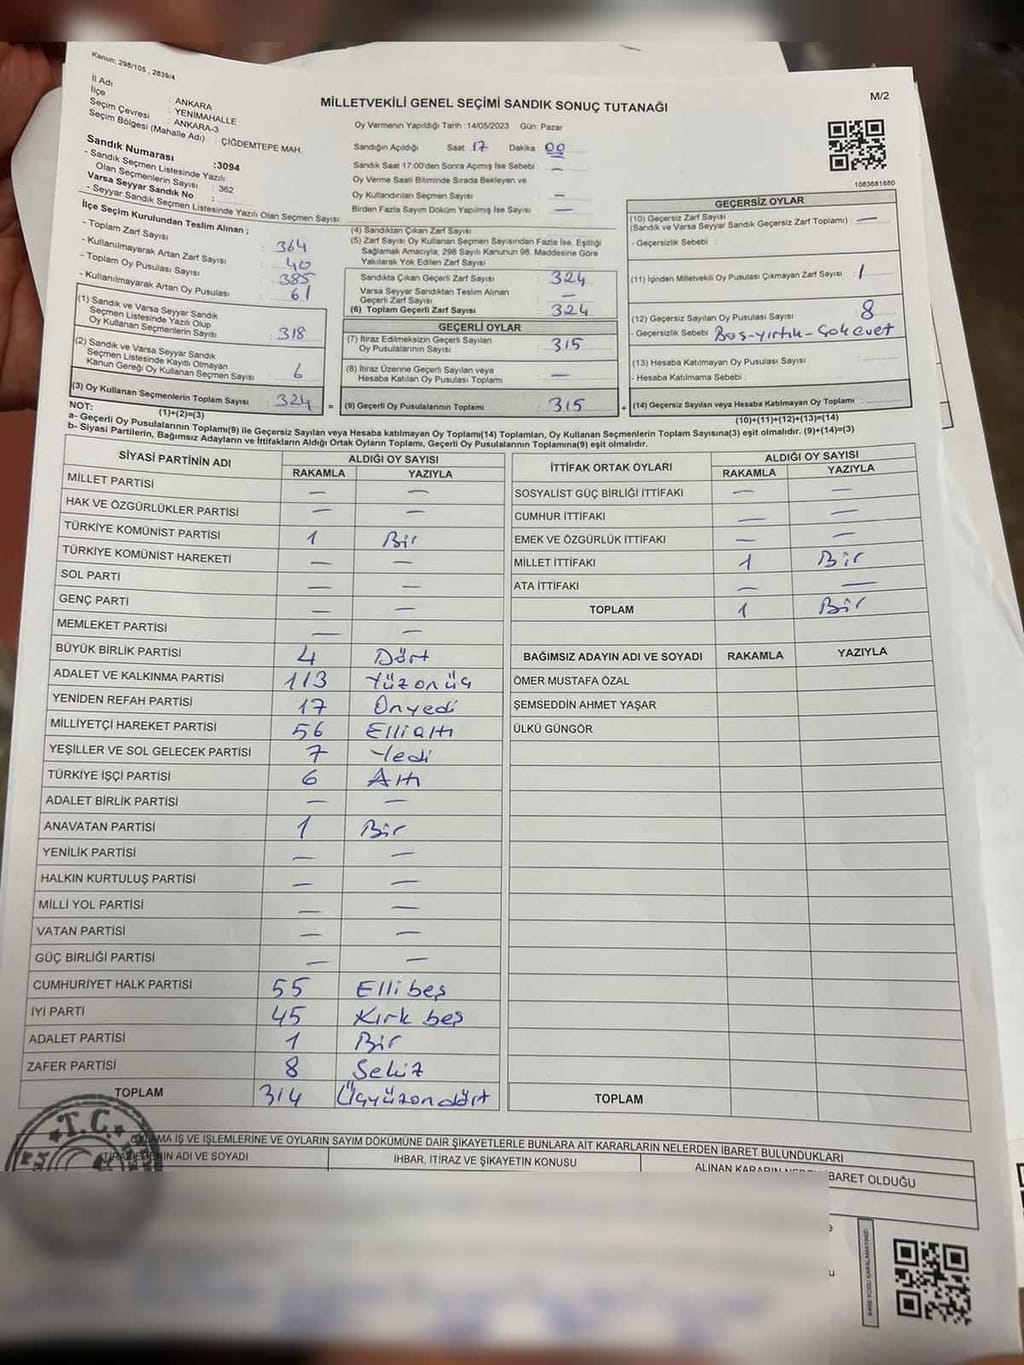 Kanun; 298/105 , 2839/4
M/2
MİLLETVEKİLİ GENEL SEÇİMİ SANDIK SONUÇ TUTANAĞI
İl Adı : ANKARA
İlçe : YENİMAHALLE
Seçim Çevresi : ANKARA-3
Seçim Bölgesi (Mahalle Adı) : ÇİĞDEMTEPE MAH.
Sandık Numarası :3094
- Sandık Seçmen Listesinde Yazılı
Olan Seçmenlerin Sayısı : 362
Varsa Seyyar Sandık No :
- Seyyar Sandık Seçmen Listesinde Yazılı Olan Seçmen Sayısı :
İlçe Seçim Kurulundan Teslim Alınan ;
- Toplam Zarf Sayısı : 364
- Kullanılmayarak Artan Zarf Sayısı : 40
- Toplam Oy Pusulası Sayısı : 385
- Kullanılmayarak Artan Oy Pusulası : 61
(1) Sandık ve Varsa Seyyar Sandık
Seçmen Listesinde Yazılı Olup
Oy Kullanan Seçmenlerin Sayısı : 318
(2) Sandık ve Varsa Seyyar Sandık
Seçmen Listesinde Kayıtlı Olmayan
Kanun Gereği Oy Kullanan Seçmen Sayısı : 6
(3) Oy Kullanan Seçmenlerin Toplam Sayısı : 324 =
(1)+(2)=(3)
Oy Vermenin Yapıldığı Tarih :14/05/2023 Gün: Pazar
Sandığın Açıldığı Saat 17 Dakika : 00
Sandık Saat 17.00'den Sonra Açımış İse Sebebi : —
Oy Verme Saati Bitiminde Sırada Bekleyen ve
Oy Kullandırılan Seçmen Sayısı —
Birden Fazla Sayım Döküm Yapılmış İse Sayısı —
(4) Sandıktan Çıkan Zarf Sayısı
(5) Zarf Sayısı Oy Kullanan Seçmen Sayısından Fazla İse, Eşitliği
Sağlamak Amacıyla; 298 Sayılı Kanunun 98. Maddesine Göre
Yakılarak Yok Edilen Zarf Sayısı
Sandıkta Çıkan Geçerli Zarf Sayısı : 324
Varsa Seyyar Sandıktan Teslim Alınan
Geçerli Zarf Sayısı : —
(6) Toplam Geçerli Zarf Sayısı : 324
GEÇERLİ OYLAR
(7) İtiraz Edilmeksizin Geçerli Sayılan
Oy Pusulalarının Sayısı : 315
(8) İtiraz Üzerine Geçerli Sayılan veya
Hesaba Katılan Oy Pusulası Toplamı : —
(9) Geçerli Oy Pusulalarının Toplamı : 315 +
1083681880
GEÇERSİZ OYLAR
(10) Geçersiz Zarf Sayısı
(Sandık ve Varsa Seyyar Sandık Geçersiz Zarf Toplamı) : —
- Geçersizlik Sebebi :
(11) İçinden Milletvekili Oy Pusulası Çıkmayan Zarf Sayısı : 1
(12) Geçersiz Sayılan Oy Pusulası Sayısı : 8
- Geçersizlik Sebebi : Boş-yırtık-Çok evet
(13) Hesaba Katılmayan Oy Pusulası Sayısı :
- Hesaba Katılmama Sebebi :
(14) Geçersiz Sayılan veya Hesaba Katılmayan Oy Toplamı :
(10)+(11)+(12)+(13)=(14)
NOT:
a- Geçerli Oy Pusulalarının Toplamı(9) ile Geçersiz Sayılan veya Hesaba katılmayan Oy Toplamı(14) Toplamları, Oy Kullanan Seçmenlerin Toplam Sayısına(3) eşit olmalıdır. (9)+(14)=(3)
b- Siyasi Partilerin, Bağımsız Adayların ve İttifakların Aldığı Ortak Oyların Toplamı, Geçerli Oy Pusulalarının Toplamına(9) eşit olmalıdır.
SİYASİ PARTİNİN ADI ALDIĞI OY SAYISI
RAKAMLA YAZIYLA
MİLLET PARTİSİ — —
HAK VE ÖZGÜRLÜKLER PARTİSİ — —
TÜRKİYE KOMÜNİST PARTİSİ 1 Bir
TÜRKİYE KOMÜNİST HAREKETİ — —
SOL PARTİ — —
GENÇ PARTİ — —
MEMLEKET PARTİSİ — —
BÜYÜK BİRLİK PARTİSİ 4 Dört
ADALET VE KALKINMA PARTİSİ 113 Yüzonüç
YENİDEN REFAH PARTİSİ 17 Onyedi
MİLLİYETÇİ HAREKET PARTİSİ 56 Ellialtı
YEŞİLLER VE SOL GELECEK PARTİSİ 7 Yedi
TÜRKİYE İŞÇİ PARTİSİ 6 Altı
ADALET BİRLİK PARTİSİ — —
ANAVATAN PARTİSİ 1 Bir
YENİLİK PARTİSİ — —
HALKIN KURTULUŞ PARTİSİ — —
MİLLİ YOL PARTİSİ — —
VATAN PARTİSİ — —
GÜÇ BİRLİĞİ PARTİSİ — —
CUMHURİYET HALK PARTİSİ 55 Ellibeş
İYİ PARTİ 45 Kırk beş
ADALET PARTİSİ 1 Bir
ZAFER PARTİSİ 8 Sekiz
TOPLAM 314 Üçyüzondört
İTTİFAK ORTAK OYLARI ALDIĞI OY SAYISI
RAKAMLA YAZIYLA
SOSYALİST GÜÇ BİRLİĞİ İTTİFAKI — —
CUMHUR İTTİFAKI — —
EMEK VE ÖZGÜRLÜK İTTİFAKI — —
MİLLET İTTİFAKI 1 Bir
ATA İTTİFAKI — —
TOPLAM 1 Bir
BAĞIMSIZ ADAYIN ADI VE SOYADI RAKAMLA YAZIYLA
ÖMER MUSTAFA ÖZAL
ŞEMSEDDİN AHMET YAŞAR
ÜLKÜ GÜNGÖR
TOPLAM
T.C.
OYLAMA İŞ VE İŞLEMLERİNE VE OYLARIN SAYIM DÖKÜMÜNE DAİR ŞİKAYETLERLE BUNLARA AİT KARARLARIN NELERDEN İBARET BULUNDUKLARI
İTİRAZ EDENİN ADI VE SOYADI İHBAR, İTİRAZ VE ŞİKAYETİN KONUSU ALINAN KARARIN NEDEN İBARET OLDUĞU